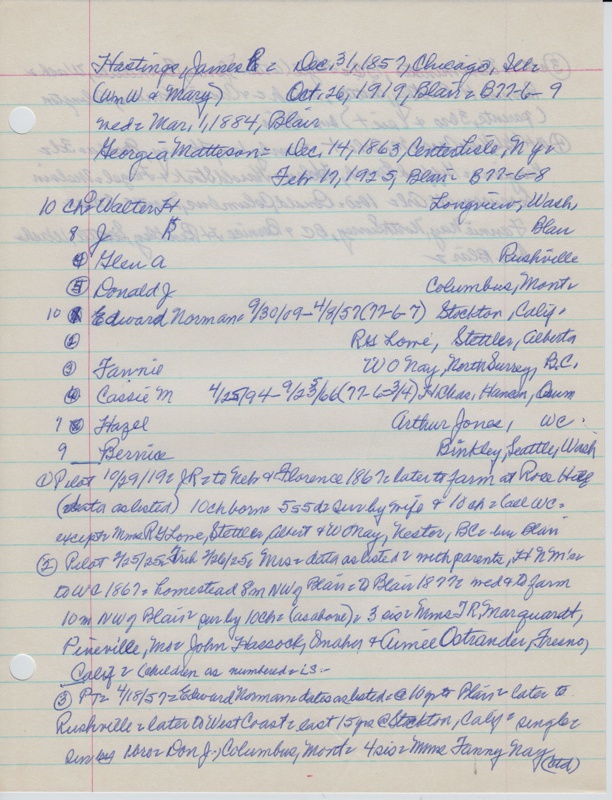 Hastings, James R = Dec, 31, 1857, Chicago, Ill =
(Wm W & Mary) Oct, 26, 1919, Blair = B77-6-9
med = Mar, 1, 1884, Blair
Georgia Matteson = Dec, 14, 1863, Centerlisle, N.y.
Feb 17, 1925, Blair = B77-6-8
10 Ch = Walter H Longview, Wash,
8 J R Blair
④ Glen A Rushville
⑤ Donald J Columbus, Mont =
10 Edward Norman = 9/30/09 - 4/8/57 (77-6-7) Stockton, Calif.
② R H Lowe, Stettler, Alberta
③ Fannie W O Nay, North Surrey, B.C.
Cassie M 4/25/94 - 9/25/66 (77-6-3/4) H Chas, Hansen, Osum
7 Hazel Arthur Jones, WC.
9 Bernice Binkley, Seattle, Wash
① Pilot 10/29/19 = J R = to Nebr & Florence 1867 = later to farm at Rose Hill
(data as listed) 10 ch born = 5s 5d = surv by wife & 10 ch = (all WC =
except = Mmes R H Lowe, Stettler, Albert & W O Nay, Nestor, BC = bur Blair
② Pilot 2/25/25 2/26/25 = Mrs = data as listed = with parents, H N M'er
to WC 1867 = homestead 8m NW of Blair = to Blair 1877 = med & to farm
10 m NW of Blair = surv by 10 ch = (as above) = 3 sis = Mmes T R, Marquardt,
Pineville, Mo = John Hassock, Omaha & Aimee Ostrander, Fresno,
Calif = (children as numbered = is -
③ PT = 4/18/57 = Edward Norman = dates as listed = @ 10 yr to Blair = later to
Rushville = later to West Coast = last 15 yrs @ Stockton, Calif = single =
surv by 1 bro = Don J., Columbus, Mont = 4 sis = Mmes Fanny Nay
(ctd)